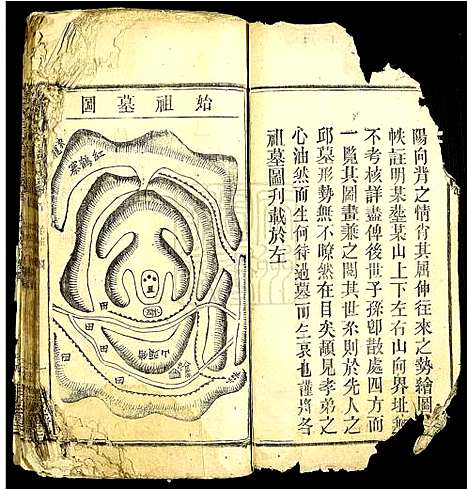 陽向背之情肖其屈伸往來之勢繪圖
帙註明某塋某山上下左右山向界址無
不考核詳盡俾後世子孫卽散處四方而
一覽其圖畫兼之閱其世系則於先人之
邱墓形勢無不瞭然在目矣頴見孝弟之
心油然而生何待過墓而生哀也謹將各
祖墓圖刋載於左
始祖墓圖
紅鶴窠
田
田
田
山頭